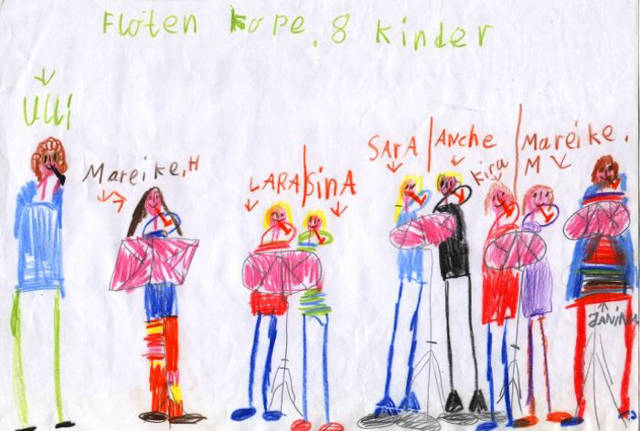 Flöten Kope. 8 Kinder
Ulli
Mareike,H
LARA SinA
SArA
Anche
kira
Mareike.
M
JAninA